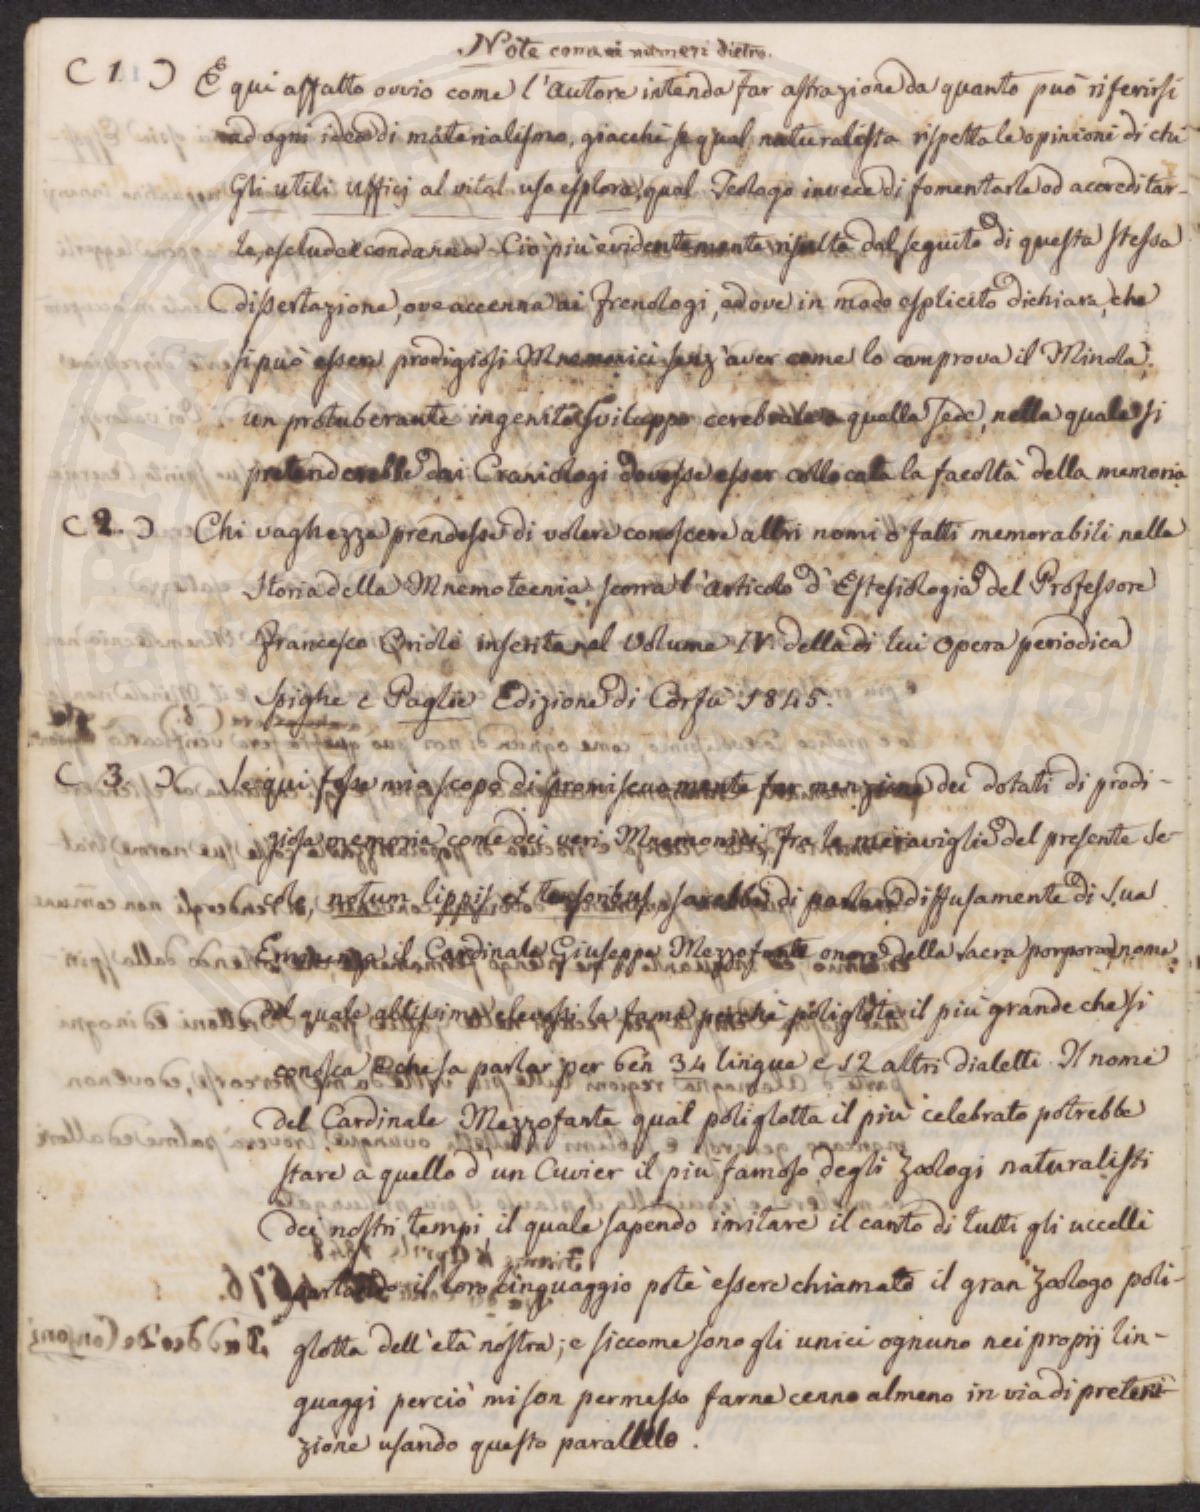 Note come ai numeri dietro.
( 1. ) È qui affatto ovvio come l'autore intenda far astrazione da quanto può riferirsi
ad ogni idea di materialismo, giacchè se qual naturalista rispetta le opinioni di chi
Gli utili uffizj al vital uso esplora, qual Teologo invece di fomentarle od accreditar-
le, esclude e condanna. Ciò più evidentemente risulta dal seguito di questa stessa
dissertazione, ove accenna ai Frenologi, ed ove in modo esplicito dichiara, che
si può essere prodigiosi Mnemonici senz'aver come lo comprova il Minola,
un protuberante ingenito sviluppo cerebrale a quella sede, nella quale si
pretenderebbe dai Craniologi dovesse esser collocata la facoltà della memoria
( 2. ) Chi vaghezza prendesse di volere conoscere altri nomi o fatti memorabili nella
Storia della Mnemotecnia scorra l'articolo d'Estesiologia del Professore
Francesco Orioli inserito nel Volume IV della di lui Opera periodica
Spighe e Paglie Edizione di Corfù 1845.
( 3. ) Se qui fosse mio scopo di promiscuamente far menzione dei dotati di prodi-
giosa memoria come dei veri Mnemonici, fra le meraviglie del presente Se-
colo, notum lippis et tonsoribus, sarebbe di parlare diffusamente di Sua
Eminenza il Cardinale Giuseppe Mezzofante onore della Sacra porpora, nome
del quale altissima elevossi la fama perchè poliglotta il più grande che si
conosca e che sa parlar per ben 34 lingue e 12 altri dialetti. Il nome
del Cardinale Mezzofante qual poliglotta il più celebrato potrebbe
stare a quello d'un Cuvier il più famoso degli Zoologi naturalisti
dei nostri tempi, il quale sapendo imitare il canto di tutti gli uccelli
parlando il loro linguaggio potè essere chiamato il gran Zoologo poli-
glotta dell'età nostra; e siccome sono gli unici ognuno nei proprj lin-
guaggi perciò mi son permesso farne cenno almeno in via di preteri-
zione usando questo parallelo.